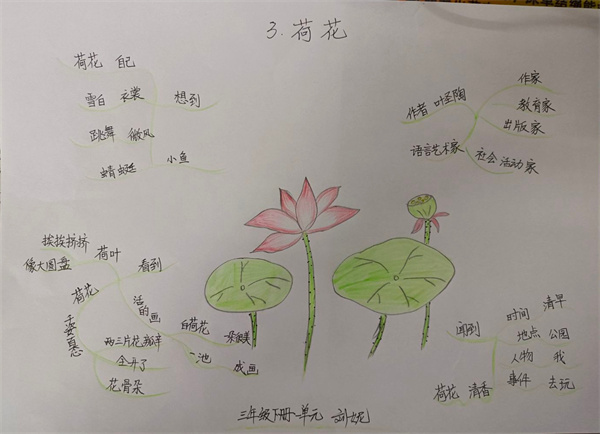 3.荷花
荷花 自己
雪白 衣裳 想到
跳舞 微风
蜻蜓 小鱼
作者 叶圣陶
作家
教育家
出版家
语言艺术家
社会活动家
挨挨挤挤 荷叶
像大圆盘
看到
荷花
千姿百态
活的画
白荷花
一池
成画
两三片花瓣
全开了
花骨朵
闻到
荷花 清香
时间 清早
地点 公园
人物 我
事件 去玩
三年级下册一单元